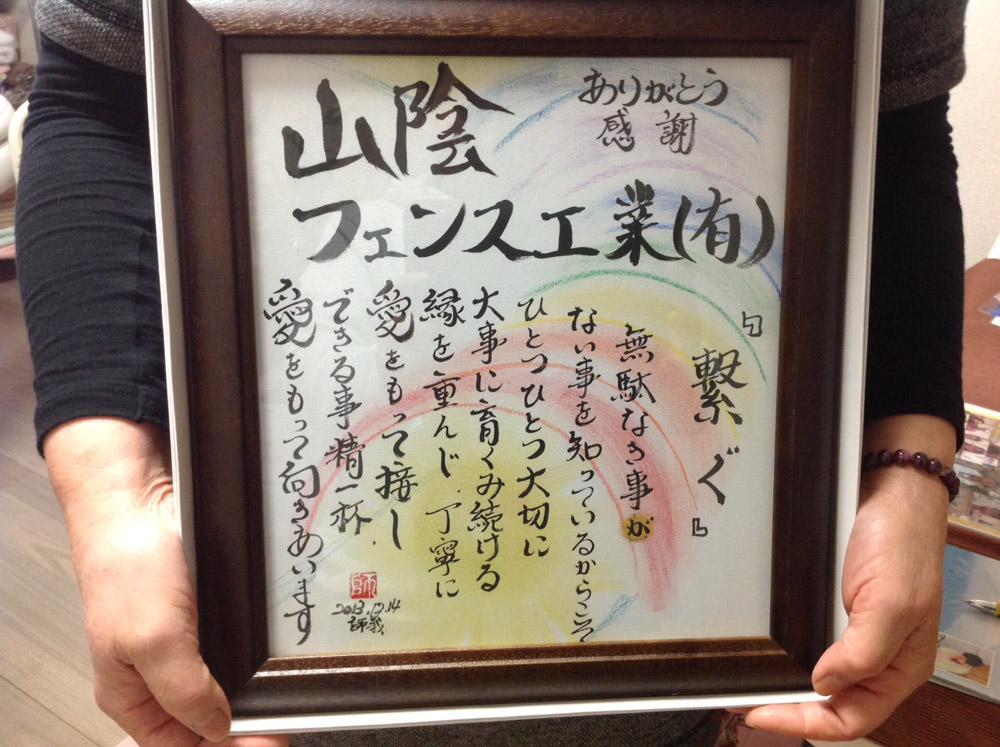 ありがとう
感謝
山陰
フェンス工業(有)
『繋ぐ』
無駄なき事が
ない事を知っているからこそ
ひとつひとつ大切に
大事に育くみ続ける
縁を重んじ、丁寧に
愛をもって接し
できる事精一杯、
愛をもって向きあいます
師
2013.12.14